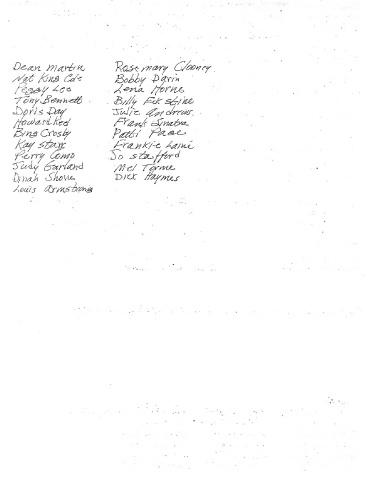 Dean Martin
Nat King Cole
Peggy Lee
Tony Bennett
Doris Day
Howard Keel
Bing Crosby
Kay Starr
Perry Como
Judy Garland
Dinah Shore
Louis Armstrong
Rosemary Clooney
Bobby Darin
Lena Horne
Billy Eckstine
Julie Andrews
Frank Sinatra
Patti Page
Frankie Laine
Jo Stafford
Mel Torme
Dick Haymes